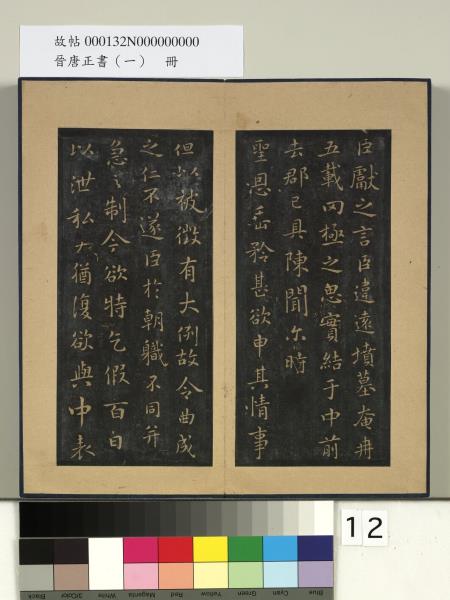 故帖 000132N000000000
晉唐正書（一） 冊
臣獻之言臣違遠墳墓奄冉
五載罔極之思實結于中前
去郡已具陳聞尓時
聖恩垂矜甚欲申其情事
但以被徵有大例故令曲成
之仁不遂臣於朝職不同并
急之制今欲特乞假百日
以泄私猶復欲與中表
12
Blue
Cyan
Green
Yellow
Red
Magenta
White
3/Color
Black